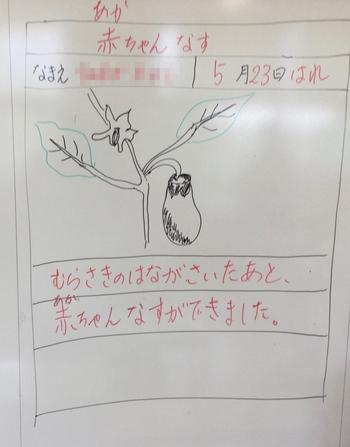 あか
赤ちゃんなす
なまえ 5月23日はれ
むらさきのはながさいたあと、
あか
赤ちゃんなすができました。